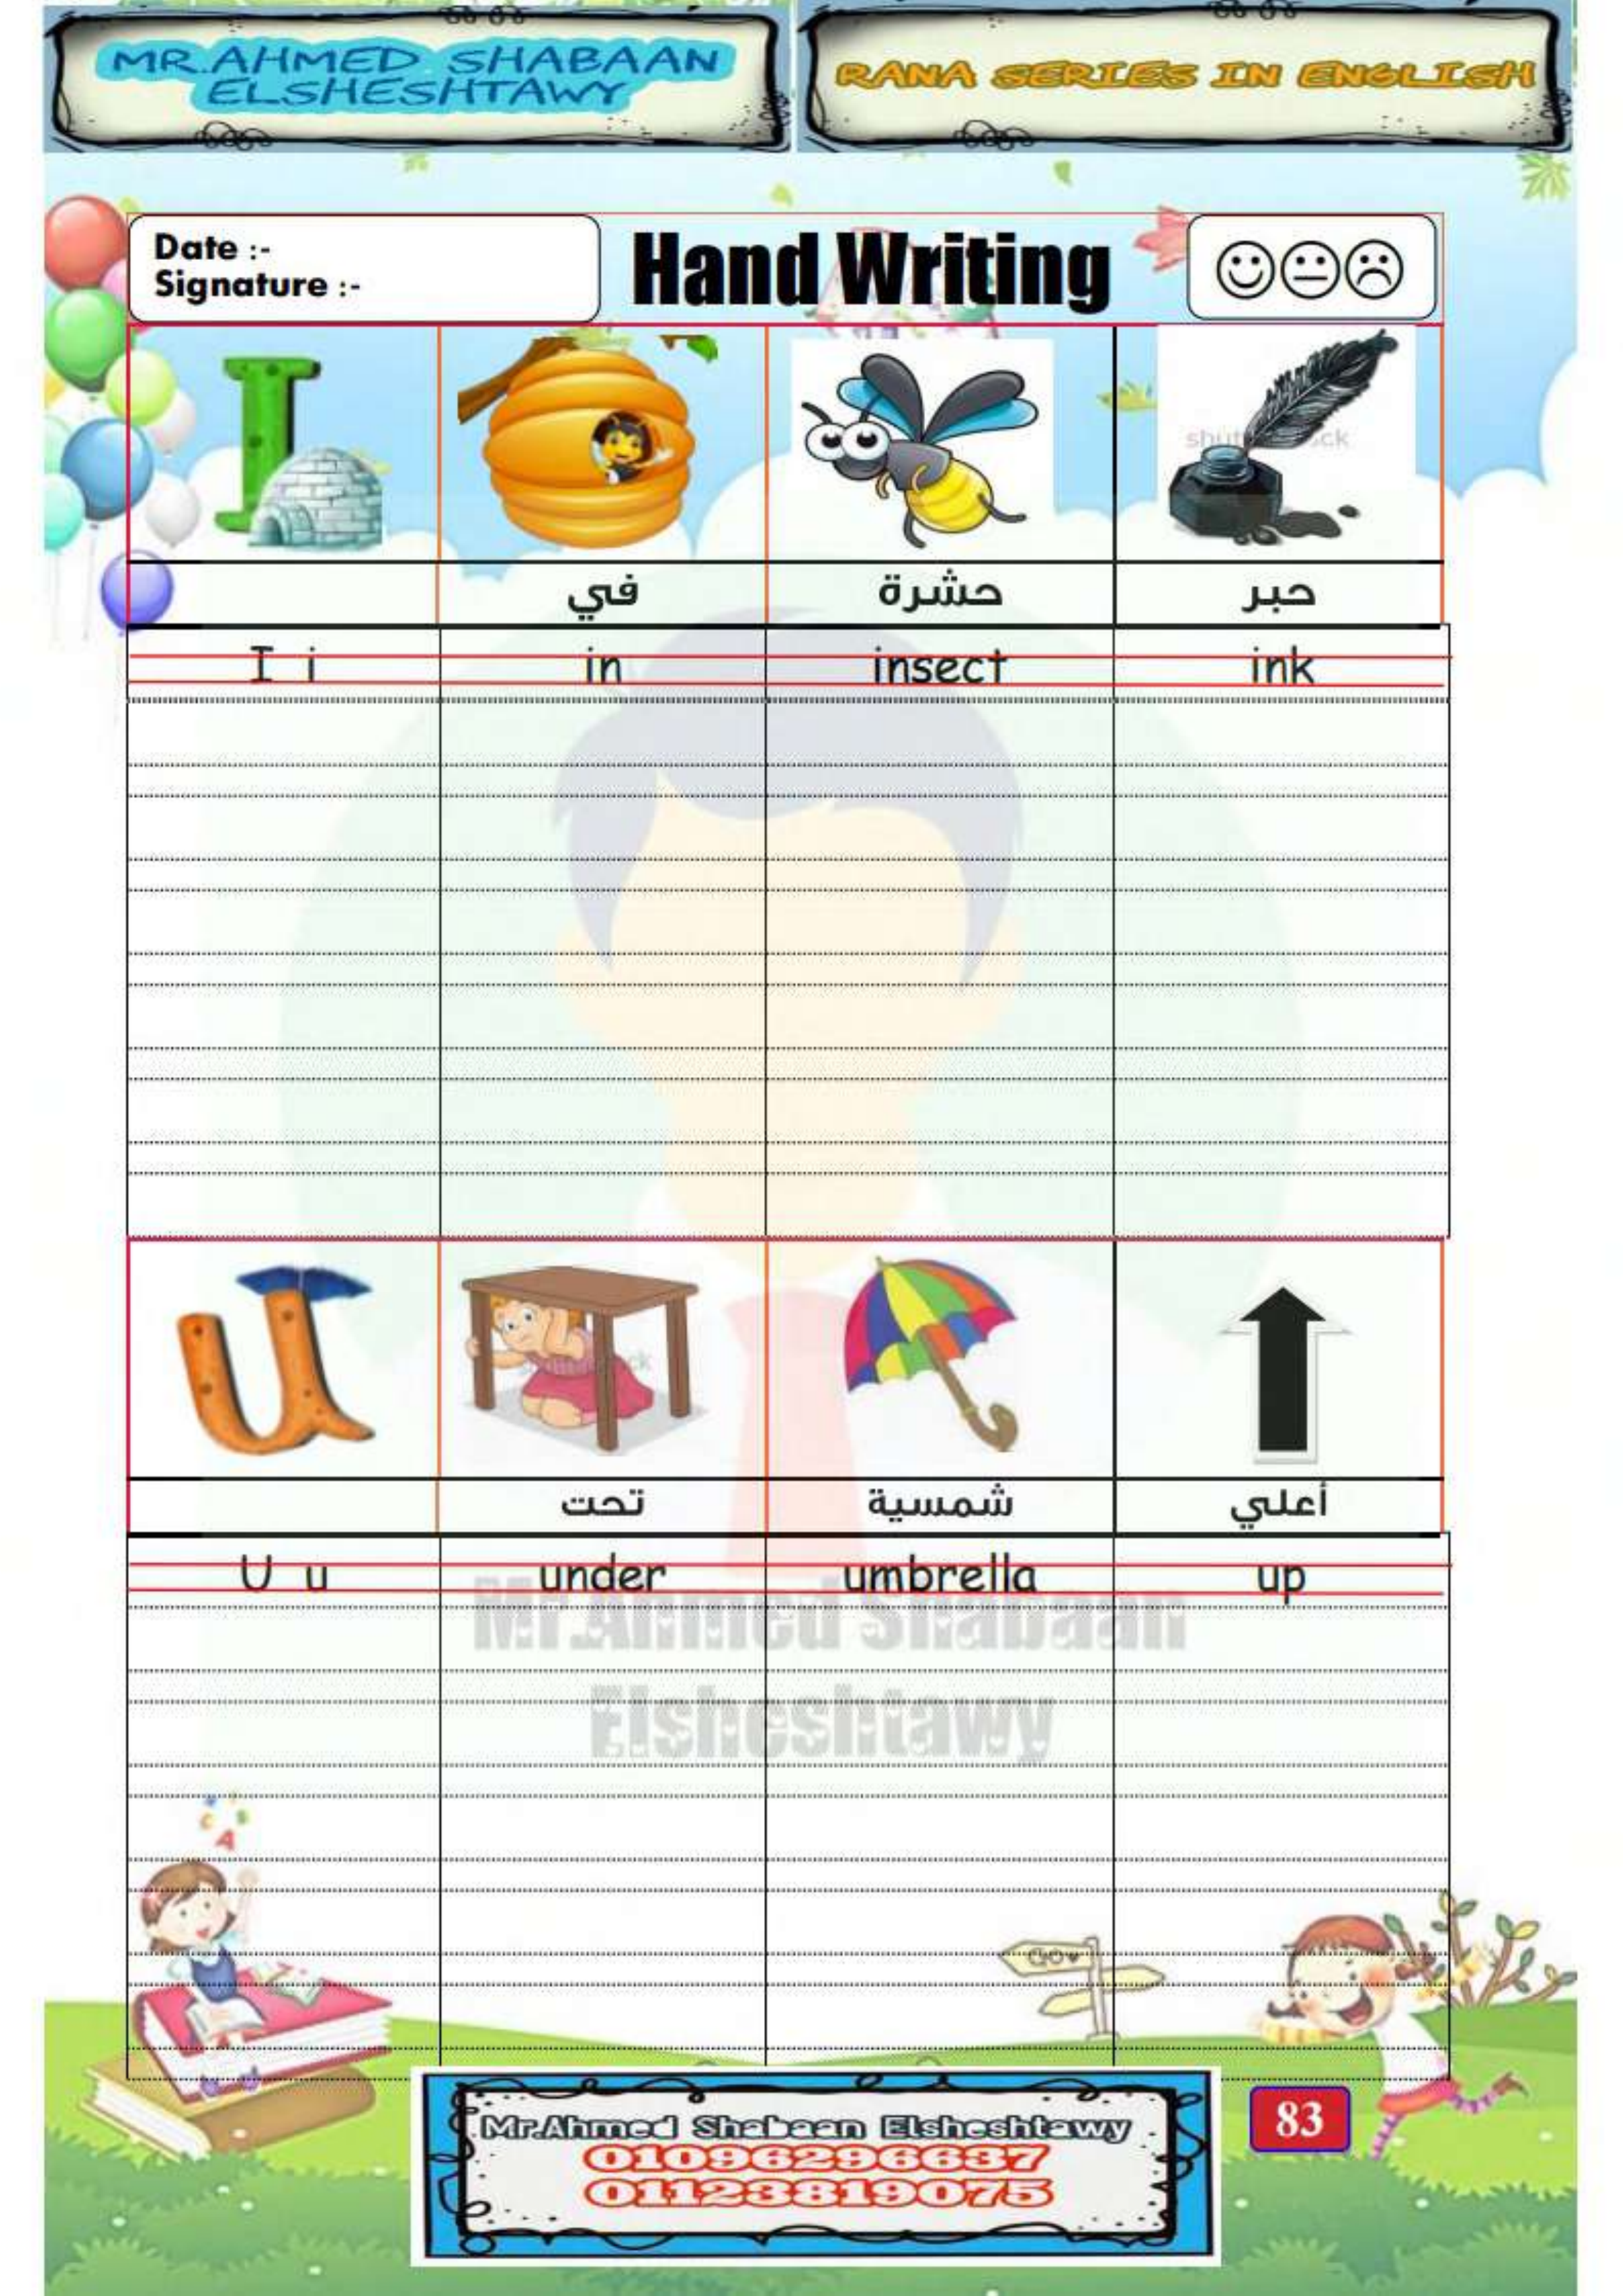 MR.AHMED SHABAAN
ELSHESHTAWY
RANA SERIES IN ENGLISH
Date :-
Signature :-
Hand Writing
في حشرة حبر
I i in insect ink
تحت شمسية أعلي
U u under umbrella up
Mr.Ahmed Shabaan
Elsheshtawy
Mr.Ahmed Shabaan Elsheshtawy
01096296637
01123819075
83